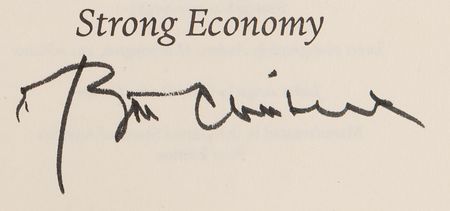 Strong Economy
Bill Clinton